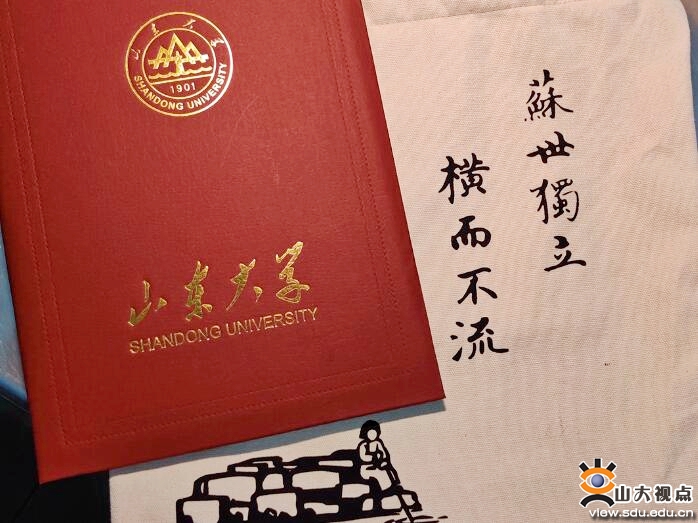 山东大学
1901
SHANDONG UNIVERSITY
山东大学
SHANDONG UNIVERSITY
蘇世獨立
橫而不流
山大视点
view.sdu.edu.cn